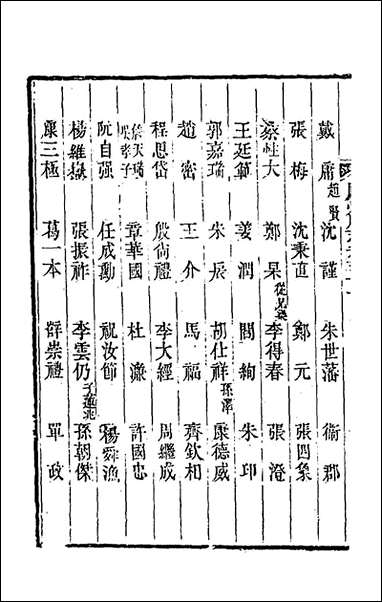 戴庸 趙賢 沈謹 朱世藩 衛郡
張梅 沈秉直 鄭元 張四象
蔡性大 鄭杲 從兄 李得春 張澄
王廷範 姜潤 閻絢 朱印
郭嘉 朱辰 胡仕祥 孫澤 康德威
趙密 王介 馬福 齊欽和
程思岱 殷尚禮 李大經 周繼成
天瑞 孝子 章華國 杜濂 許國忠
阮自强 任成勳 祝汝節 楊舜漁
楊維 張振祚 李雲仍 子 孫朝傑
康三極 葛一本 薛崇禮 單政